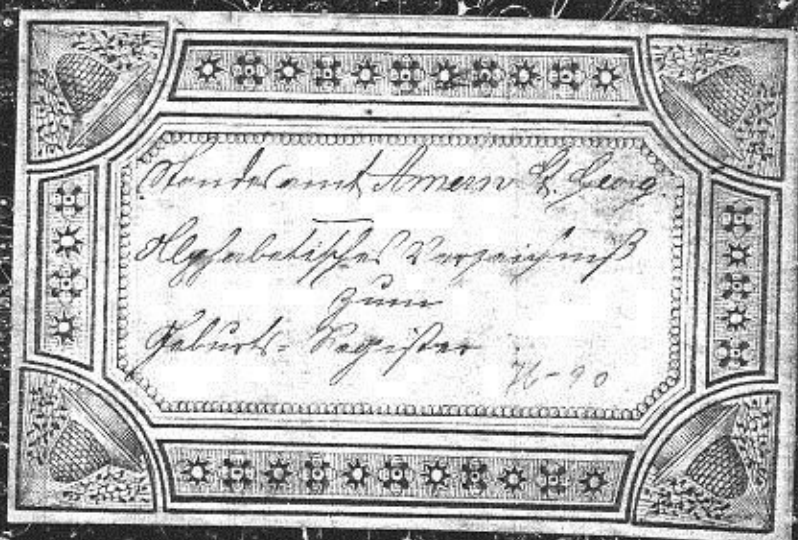 Standesamt Amern St. Georg.
Alphabetisches Verzeichniß
zum
Geburts-Register
76-90